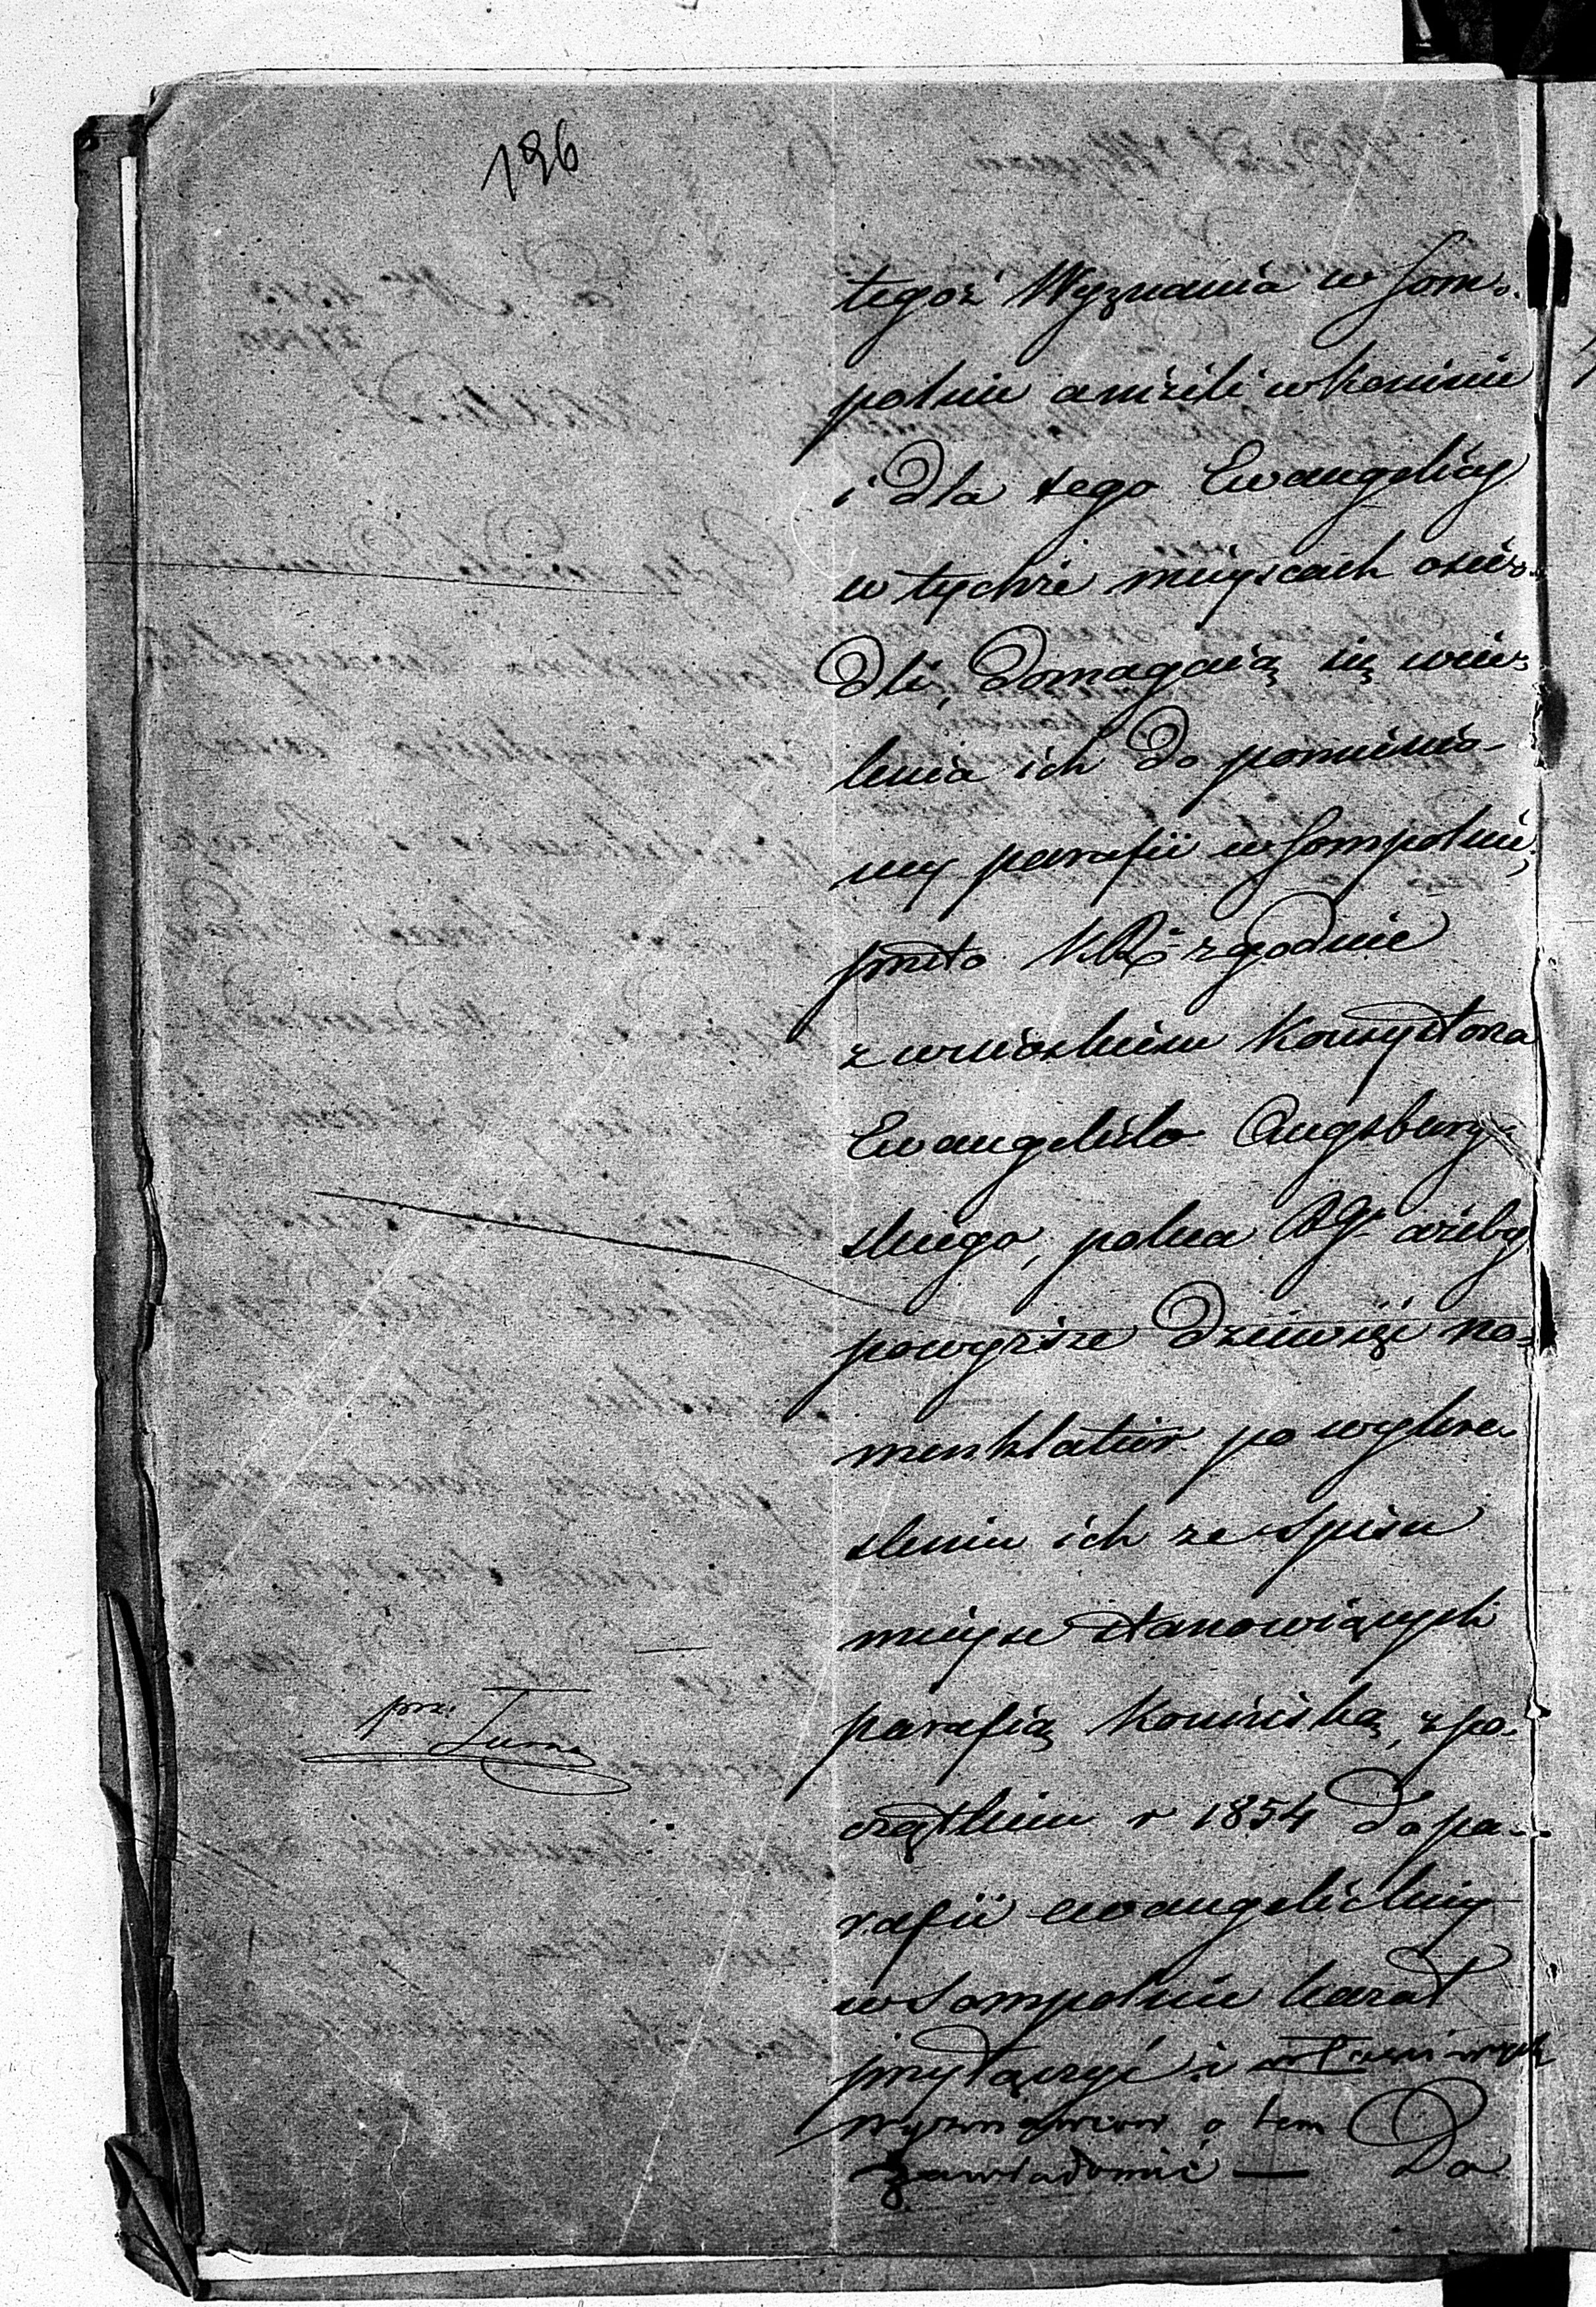 196
tegoż Wyznania w Som-
polnie aniżeli w Koninie
i dla tego Ewangelicy
w tychże mieyscach osie-
dli, domagaią się wcie-
lenia ich do pomienio-
ney parafii w Sompolnie,
przeto KR zgodnie
z wnioskiem Konsystorza
Ewangelicko Augsburg-
skiego, poleca RG. ażeby
powyższe dziewięć no-
menklatur po wykre-
śleniu ich ze spisu
mieysc stanowiących
parafią Konińską, z po-
czątkiem r 1854 do pa-
rafii ewangelickiey
w Sompolnie kazał
przyłączyć i
o tem
zawiadomić — Do
prz.